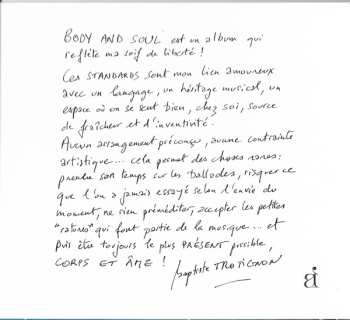 BODY AND SOUL est un album qui
reflète ma soif de liberté !
Ces STANDARDS sont mon lien amoureux
avec un langage, un héritage musical, un
espace où on se sent bien, chez soi, source
de fraîcheur et d'inventivité.
Aucun arrangement préconçu, aucune contrainte
artistique... cela permet des choses rares :
prendre son temps sur les ballades, risquer ce
que l'on a jamais essayé selon l'envie du
moment, ne rien préméditer, accepter les petites
"ratures" qui font partie de la musique... et
puis être toujours le plus PRÉSENT possible,
CORPS ET ÂME !
baptiste TROTIGNON